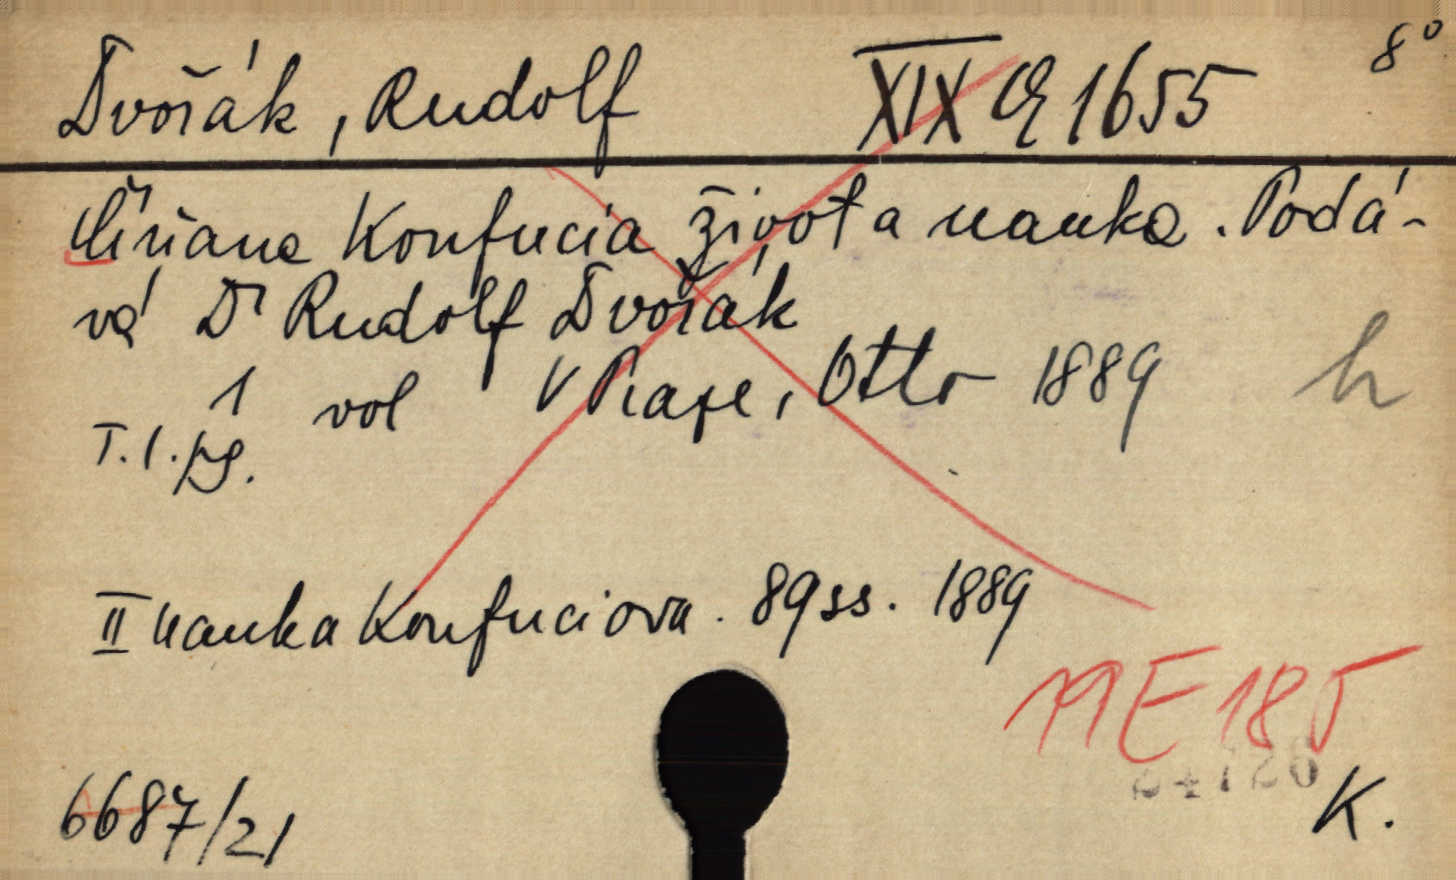 Dvořák, Rudolf XIX 1655 8°
Číňana Konfucia život a nauka. Podá-
vá Dr Rudolf Dvořák
1 vol V Praze, Otto 1889 h
T. I. pg.
II Nauka Konfuciova. 89 ss. 1889
19 E 185
24726
6687/21 K.